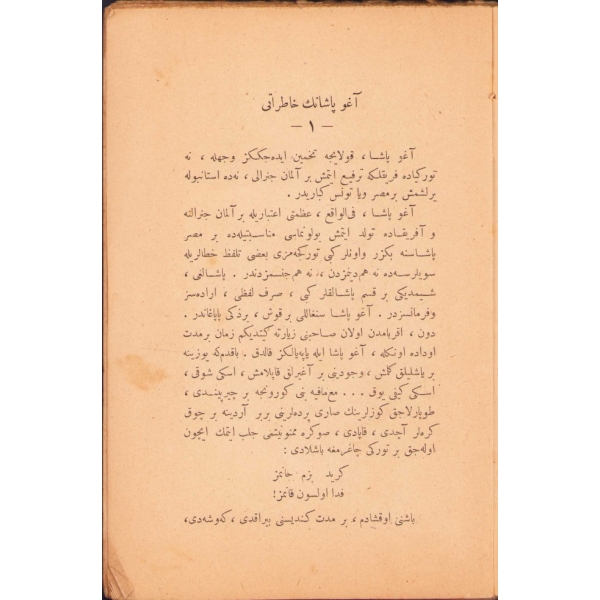 آغو پاشانك خاطراتی
— ١ —
آغو پاشا ، قولايجه تخمين ايده‌جككز وجهله ، نه
توركياده فريقلكه ترفيع ايتمش بر آلمان جنرالی ، نه‌ده استانبوله
يرلشمش برمصر ويا تونس كباريدر .
آغو پاشا ، فی‌الواقع ، عظمتی اعتباريله بر آلمان جنرالنه
و آفريقاده تولد ايتمش بولونماسی مناسبتيله‌ده بر مصر
پاشاسنه بكزر واونلر كبی توركجه‌مزی بعضی تلفظ خطالريله
سويلرسه‌ده نه هم‌دينمزدن ، نه هم‌جنسمزدندر . پاشالغی ،
شيمديكی بر قسم پاشالقلر كبی ، صرف لفظی ، اراده‌سز
وفرمانسزدر . آغو پاشا سنغاللی بر قوش ، بر ذكی پاپاغاندر .
دون ، اقربامدن اولان صاحبنی زيارته كيتديكم زمان بر مدت
اوداده اونكله ، آغو پاشا ايله ياپه‌يالكز قالدق . باقدم‌كه يوزينه
بر ياشليلق كلمش ، وجودينی بر آغيرلق قاپلامش ، اسكی شوقی ،
اسكی كيفی يوق . . . مع‌مافيه بنی كورونجه بر چيرپيندی ،
طوپارلاجق كوزلرينك صاری پرده‌لرينی بربر آردينه بر چوق
كره‌لر آچدی ، قاپادی ، صوكره ممنونيتمی جلب ايتمك ايچون
اوله‌جق بر توركی چاغرمغه باشلادی :
كريد بزم جانمز
فدا اولسون قانمز!
باشنی اوقشادم ، بر مدت كنديسنی بيراقدی ، كه‌وشه‌دی ،